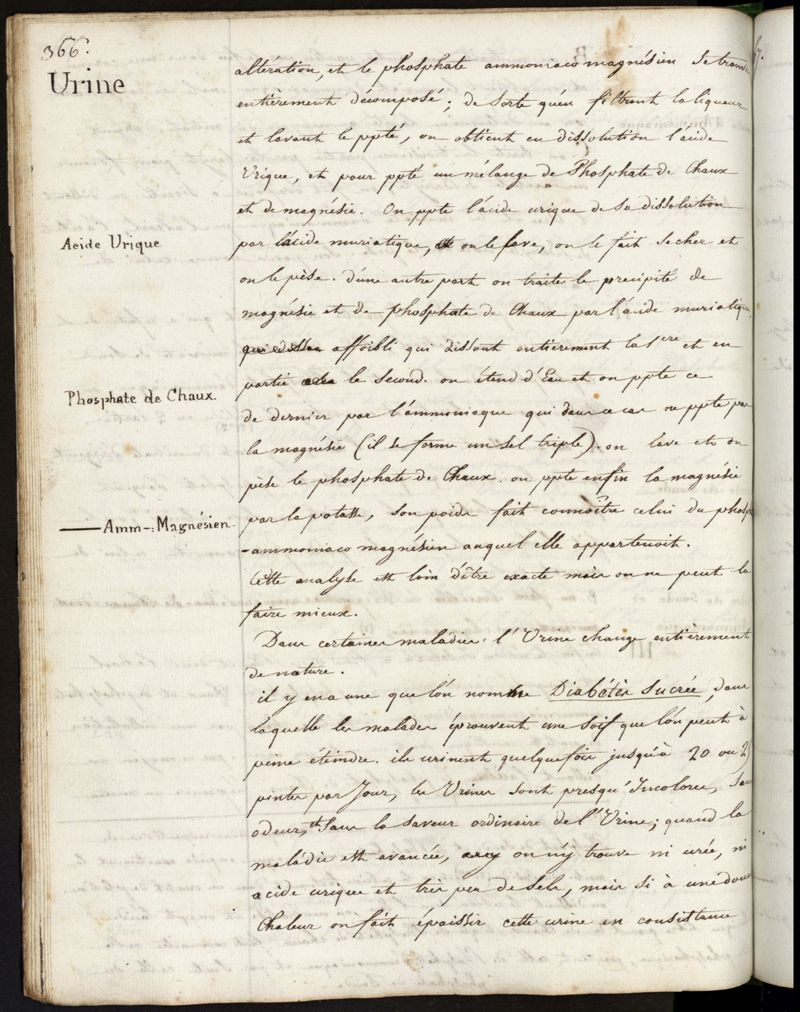 366.
Urine
altération, et le phosphate ammoniaco magnésien se trouve
entièrement décomposé; de sorte qu'en filtrant la liqueur
et lavant le ppté, on obtient en dissolution l'acide
Urique, et pour ppté un mélange de Phosphate de Chaux
et de magnésie. On ppte l'acide urique de sa dissolution
Acide Urique
par l'acide muriatique, on le lave, on le fait secher et
on le pèse. d'une autre part on traite le precipité de
magnésie et de phosphate de Chaux par l'acide muriatique
affoibli qui dissout entierement la 1ere et en
partie le second. on étend d'Eau et on ppte ce
Phosphate de Chaux.
de dernier par l'ammoniaque qui dans ce cas ne ppte pas
la magnésie (il se forme un sel triple). on lave et on
pèse le phosphate de Chaux. on ppte enfin la magnésie
par la potasse, son poids fait connoître celui du phosp
— Amm-: Magnésien.
-ammoniaco magnésien auquel elle appartenoit.
Cette analyse est loin d'être exacte mais on ne peut la
faire mieux.
Dans certaines maladies l'Urine change entièrement
de nature.
il y en a une que l'on nomme Diabétès Sucrée, dans
laquelle les malades éprouvent une soif que l'on peut à
peine éteindre. ils urinent quelquefois jusqu'à 20 ou 2
pintes par Jour, les Urines sont presqu'Incolores, San
odeur, et sans la saveur ordinaire de l'Urine; quand la
maladie est avancée, on n'y trouve ni urée, ni
acide urique et très peu de sels, mais si à une douce
Chaleur on fait épaissir cette urine en consistance